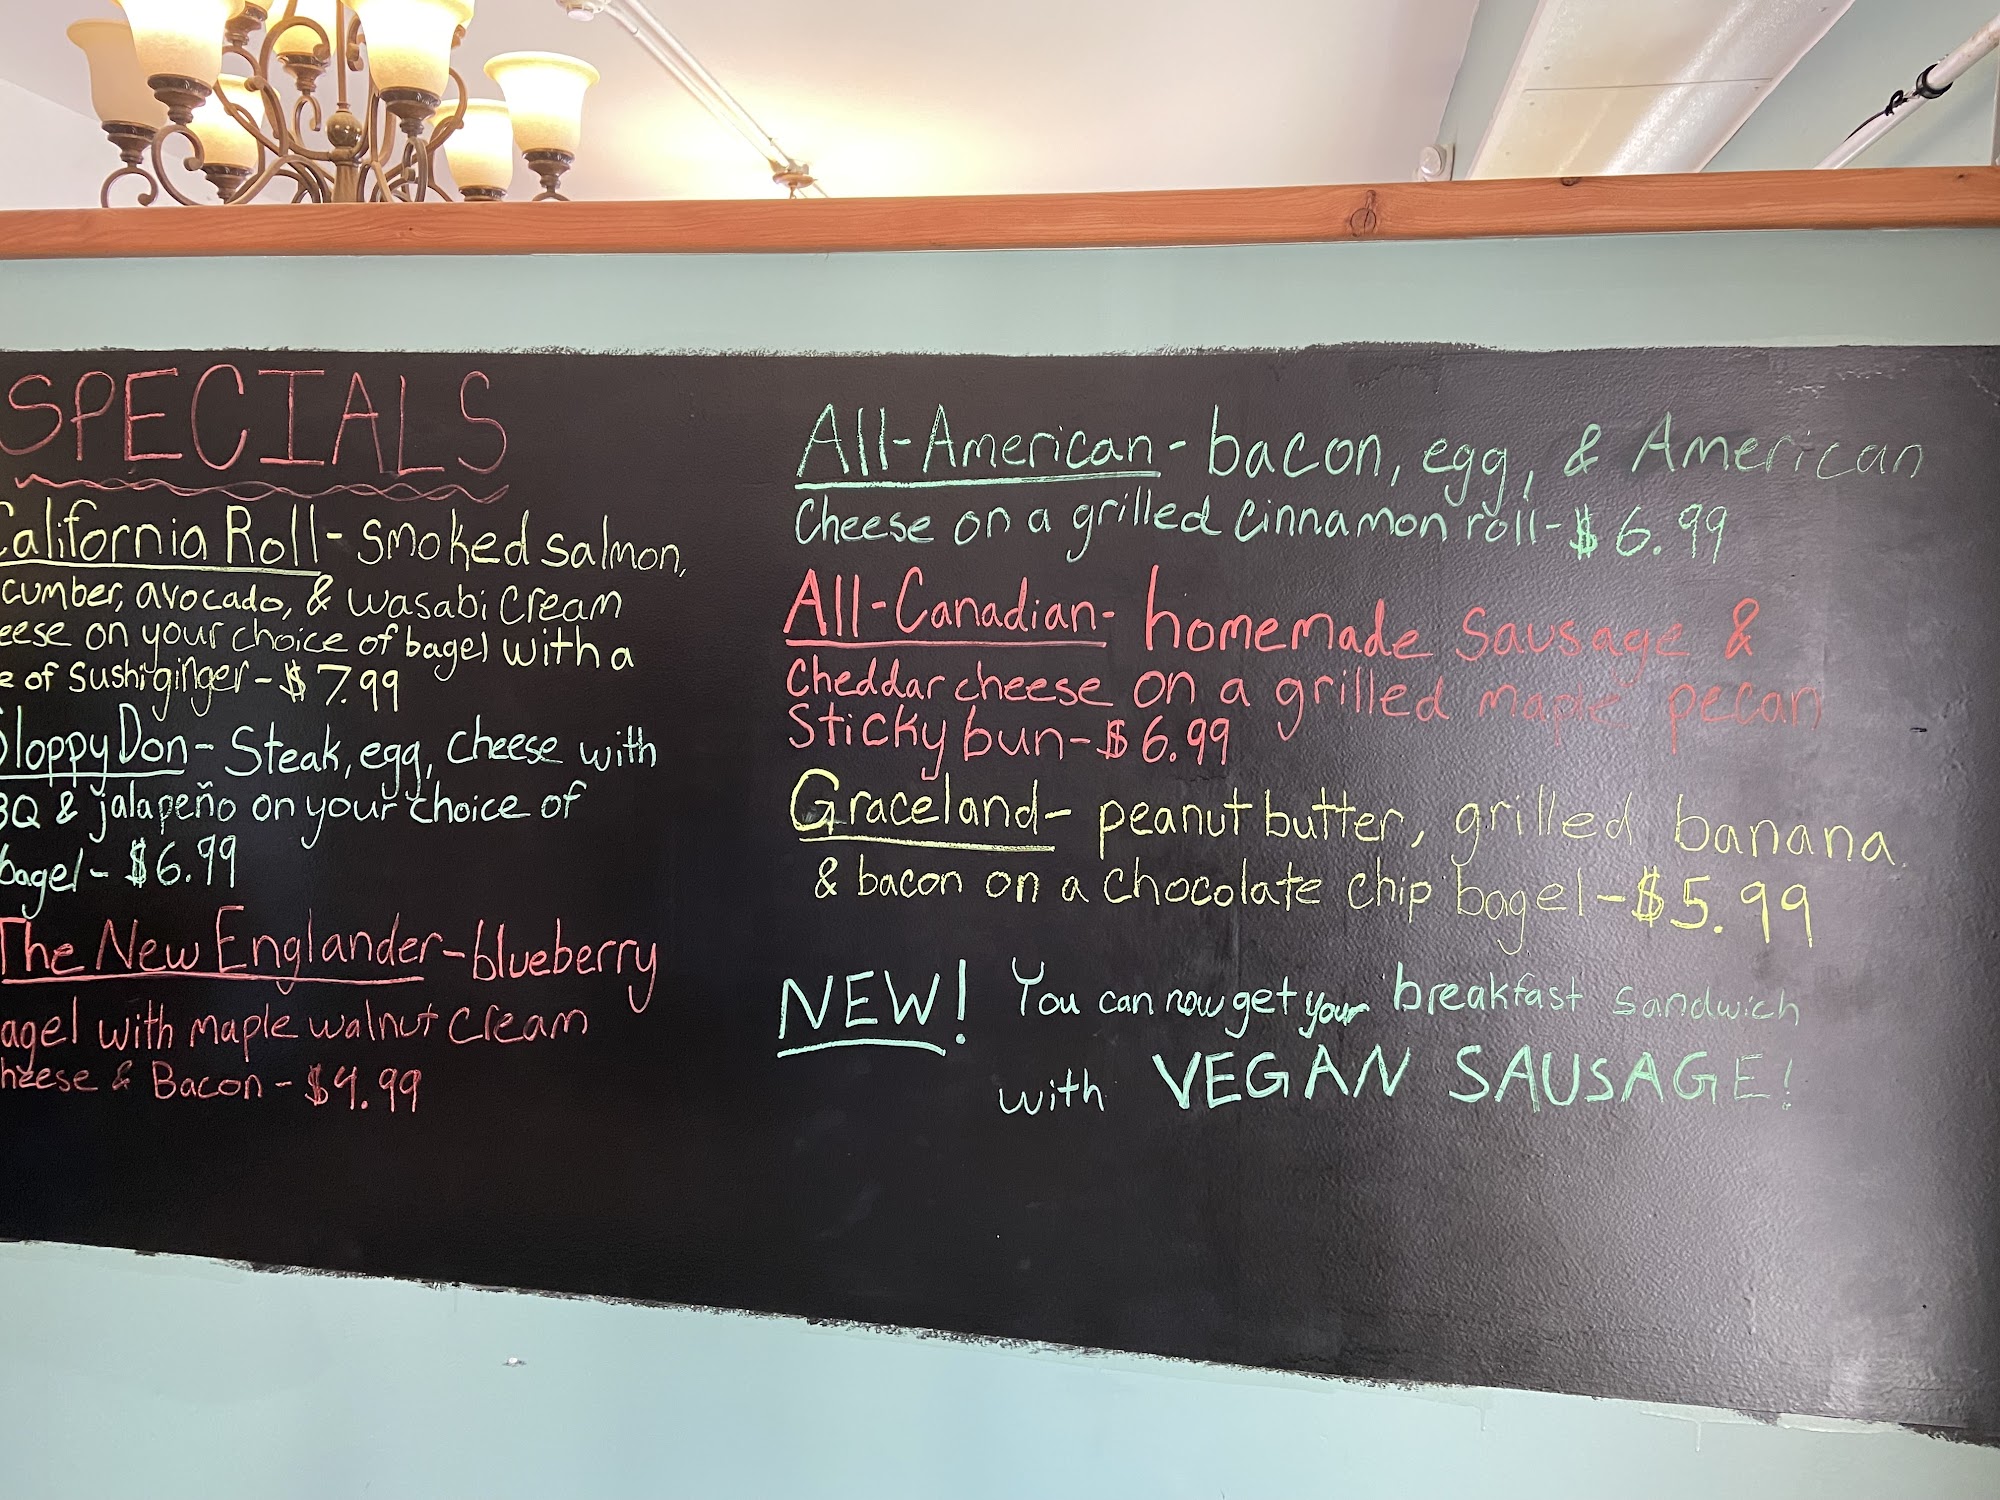 SPECIALS
California Roll - smoked salmon,
cumber, avocado, & wasabi cream
eese on your choice of bagel with a
e of sushi ginger - $7.99
Sloppy Don - Steak, egg, cheese with
BQ & jalapeño on your choice of
bagel - $6.99
The New Englander - blueberry
agel with maple walnut cream
heese & Bacon - $4.99
All-American - bacon, egg, & American
cheese on a grilled cinnamon roll - $6.99
All-Canadian - homemade sausage &
cheddar cheese on a grilled maple pecan
Sticky bun - $6.99
Graceland - peanut butter, grilled banana
& bacon on a chocolate chip bagel - $5.99
NEW! You can now get your breakfast sandwich
with VEGAN SAUSAGE!